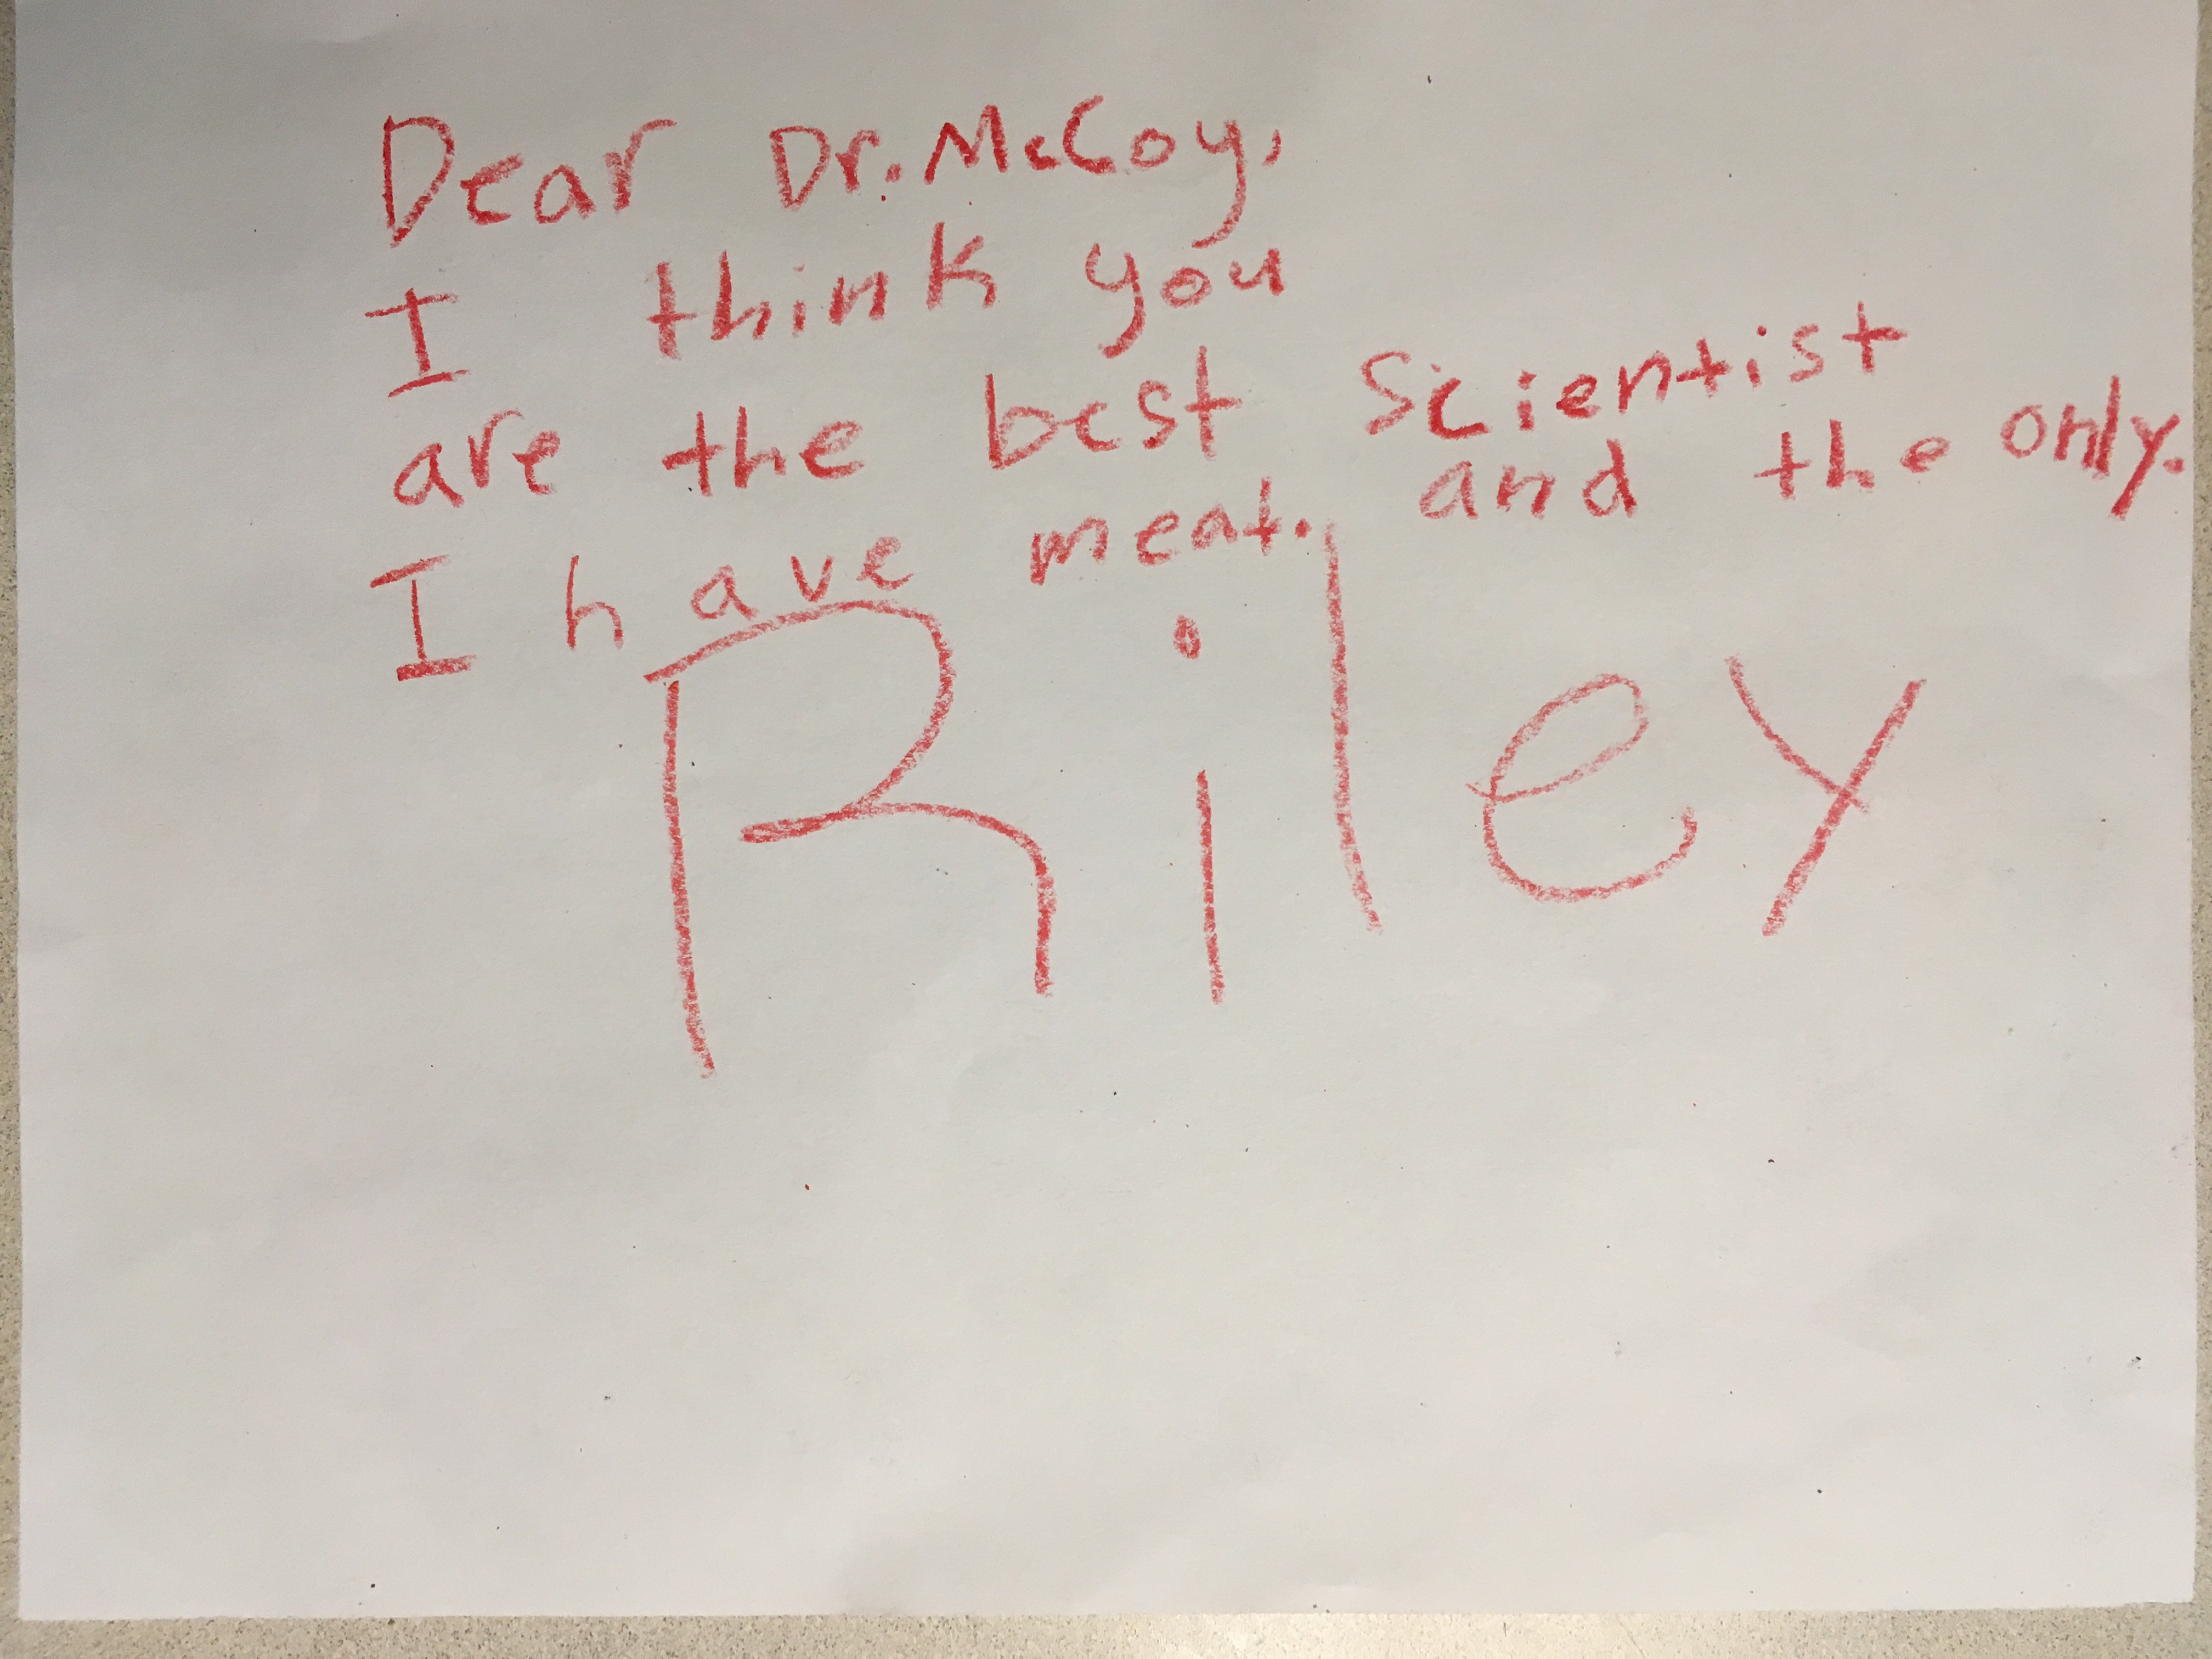 Dear Dr. McCoy,
I think you
are the best Scientist
and the only.
I have meat.
Riley